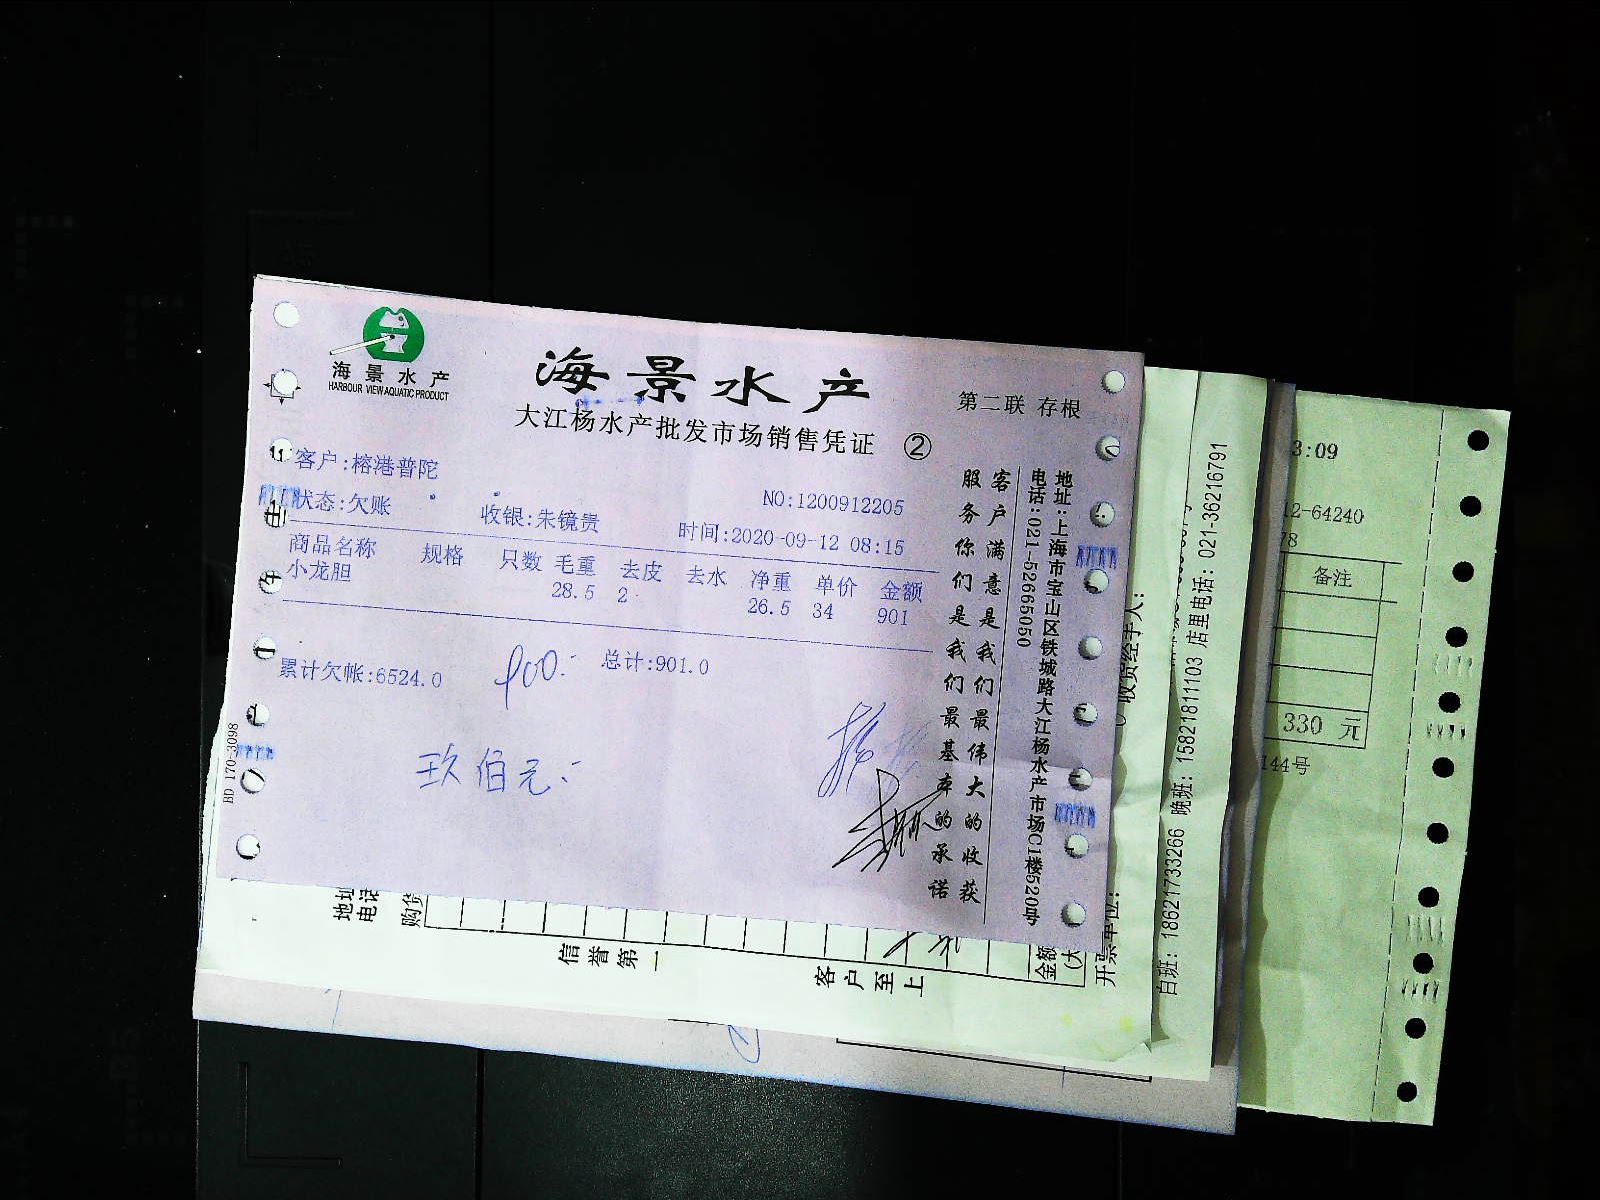 海景水产
HARBOUR VIEW AQUATIC PRODUCT
海景水产
大江杨水产批发市场销售凭证 ②
第二联 存根
客户:榕港普陀
NO:1200912205
状态:欠账 收银:朱镜贵 时间:2020-09-12 08:15
商品名称 规格 只数 毛重 去皮 去水 净重 单价 金额
小龙胆 28.5 2 26.5 34 901
累计欠帐:6524.0 900.- 总计:901.0
玖佰元.-
BD 170-3098
客户满意是我们最伟大的收获
服务你们是我们最基本的承诺
地址:上海市宝山区铁城路大江杨水产市场C1楼520号
电话:021-52665050
地址
电话
购货
信誉第一
客户至上
金额
(大
开票单位:
收货经手人:
白班: 18621733266 晚班: 15821811103 店里电话: 021-36216791
3:09
12-64240
78
备注
330 元
144号